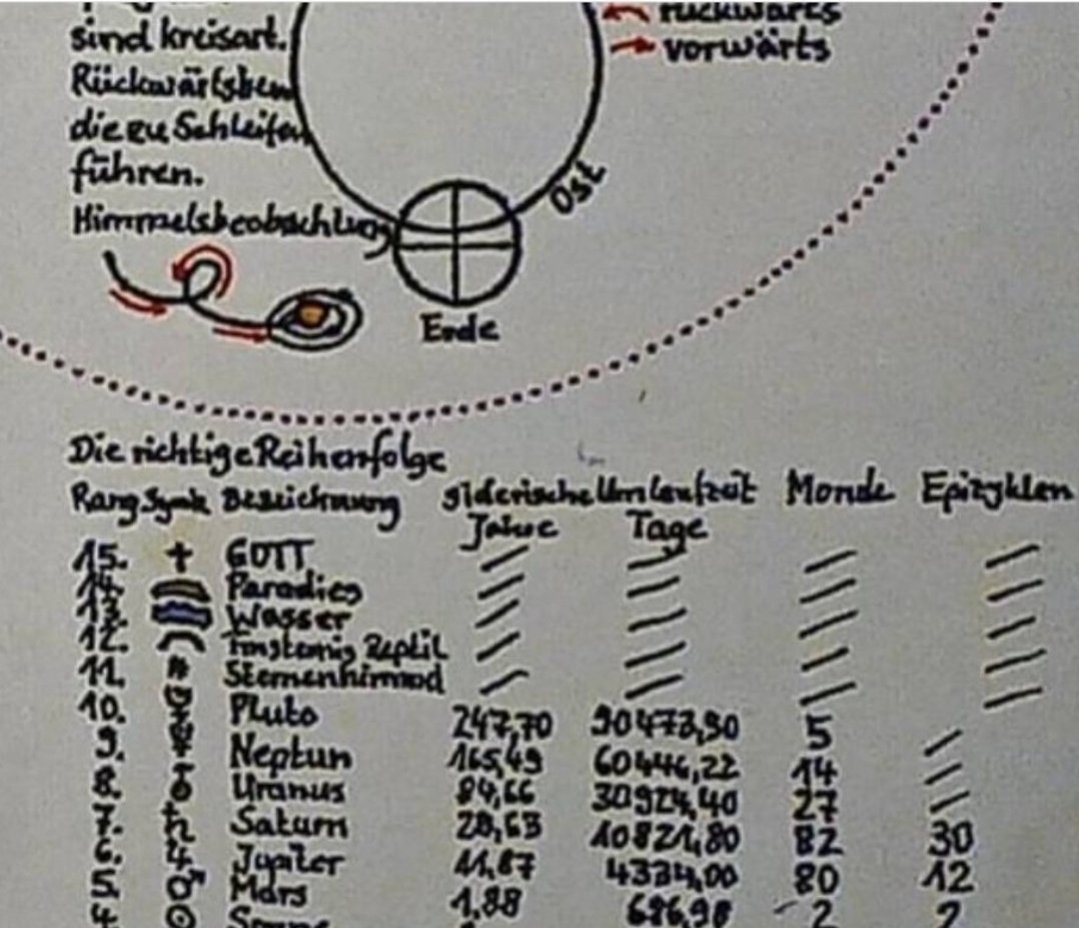 rückwärts
sind kreisart.
vorwärts
Rückwärtsbew
die zu Schleifen
führen.
Ost
Himmelsbeobachtung
Erde
Die richtige Reihenfolge
Rang Symb. Bezeichnung siderische Umlaufzeit Monde Epizyklen
Jahre Tage
15. GOTT
14. Paradies
13. Wasser
12. Reptil
11. Sternenhimmel
10. Pluto 247,70 90473,90 5
9. Neptun 165,49 60446,22 14
8. Uranus 84,66 30924,40 27
7. Saturn 29,63 10821,80 82 30
6. Jupiter 11,87 4334,00 80 12
5. Mars 1,88 686,98 2 2
4. Sonne